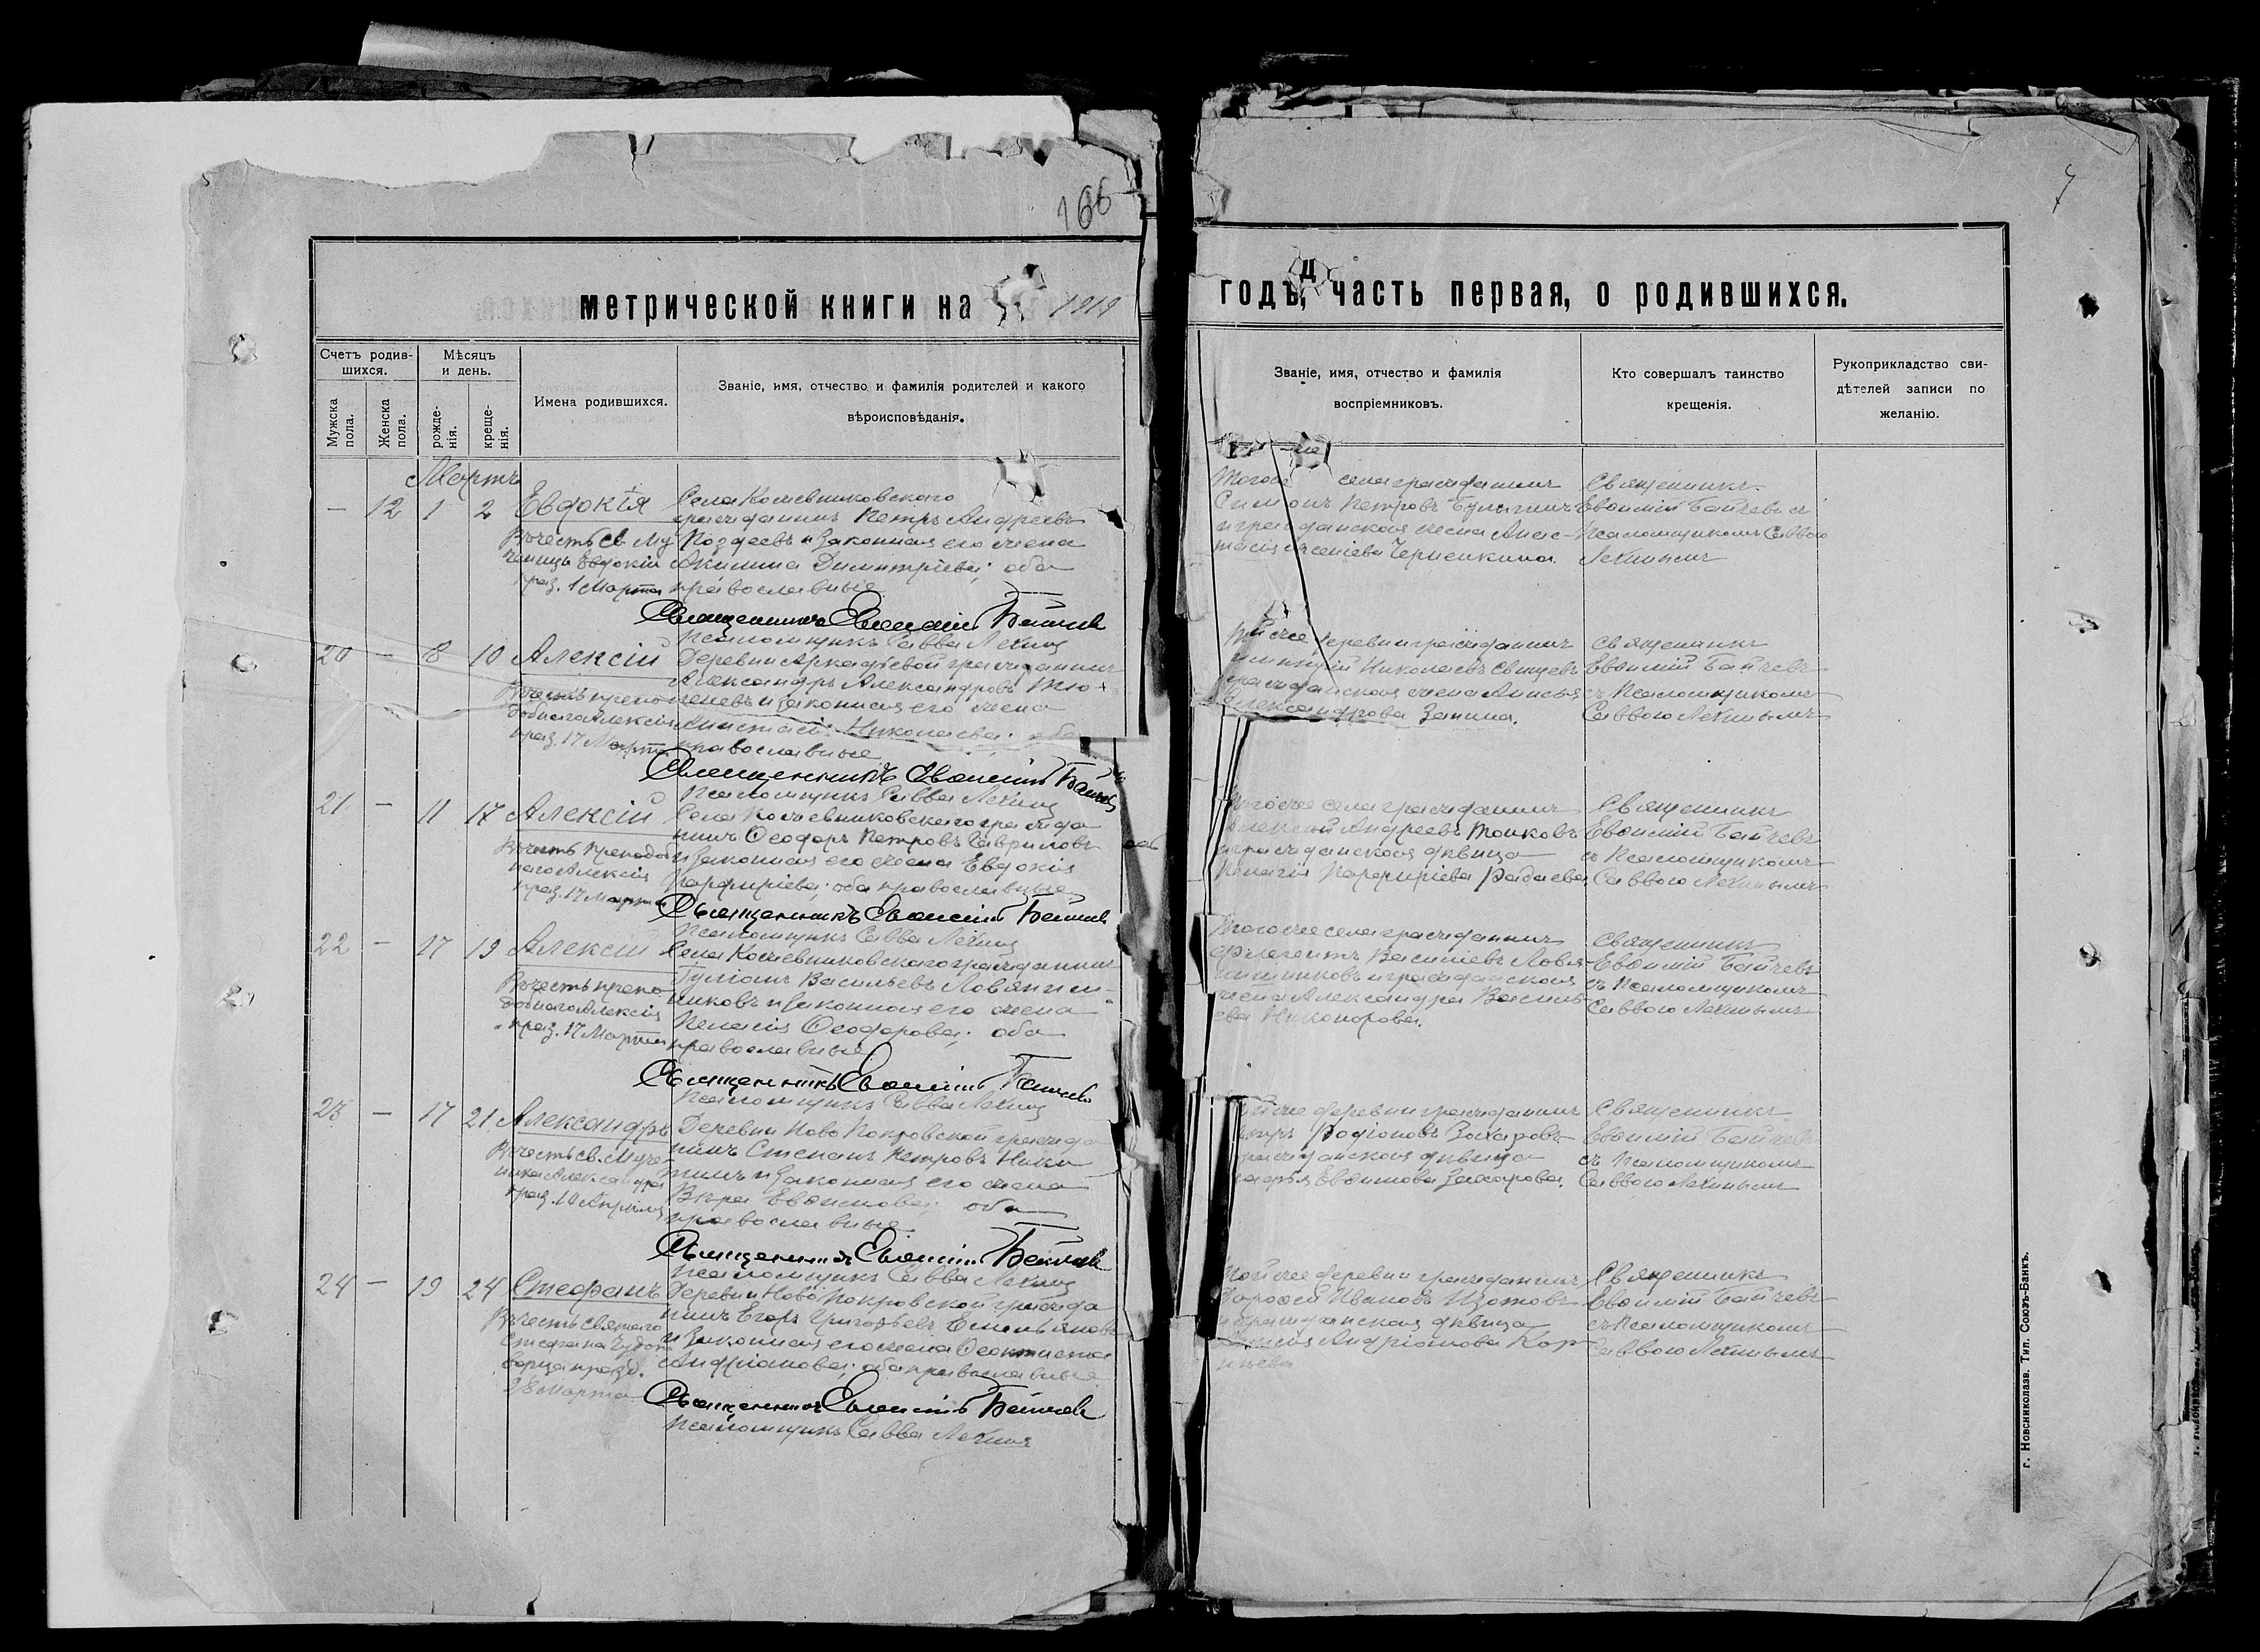 166
7
метрической книги на 1919
годъ, часть первая, о родившихся.
Счетъ родив-
шихся.
Мужска
пола.
Женска
пола.
Мѣсяцъ
и день.
рожде-
нія.
креще-
нія.
Имена родившихся.
Званіе, имя, отчество и фамилія родителей и какого
вѣроисповѣданія.
Званіе, имя, отчество и фамилія
воспріемниковъ.
Кто совершалъ таинство
крещенія.
Рукоприкладство сви-
дѣтелей записи по
желанію.
Мартъ
— 12 1 2 Евдокія
Въ честь св. Му
ченицы Евдокіи
праз. 1 Марта
Села Кожевниковскаго
гражданинъ Петръ Андреевъ
Поздеевъ и законная его жена
Акилина Димитріева; оба
православные
Священникъ Евѳимій Байчевъ
Псаломщикъ Савва Лехинъ
Того села гражданинъ
Симонъ Петровъ
и гражданская жена Анас-
тасія Черненкина.
Священникъ
Евѳимій Байчевъ съ
Псаломщикомъ Саввою
Лехинымъ
20 — 8 10 Алексій
Въ честь препо
добнаго Алексія
праз. 17 Марта
Деревни Аркадьевой гражданинъ
Александръ Александровъ
и законная его жена
Анастасія Николаева; оба
православные
Священникъ Евѳимій Байчевъ
Псаломщикъ Савва Лехинъ
Той же деревни гражданинъ
Николаевъ
гражданская жена Анисья
Александрова Занина.
Священникъ
Евѳимій Байчевъ
съ Псаломщикомъ
Саввою Лехинымъ
21 — 11 17 Алексій
Въ честь преподоб
наго Алексія
праз. 17 Марта
Села Кожевниковскаго гражда
нинъ Ѳеодоръ Петровъ Гавриловъ
и законная его жена Евдокія
Парфиріева; оба православные
Священникъ Евѳимій Байчевъ
Псаломщикъ Савва Лехинъ
Того же села гражданинъ
Алексѣй Андреевъ
и гражданская дѣвица
Пелагія Парфиріева
Священникъ
Евѳимій Байчевъ
съ Псаломщикомъ
Саввою Лехинымъ
22 — 17 19 Алексій
Въ честь препо
добнаго Алексія
праз. 17 Марта
Села Кожевниковскаго гражданинъ
Іуліанъ Васильевъ Ловягин-
никовъ и законная его жена
Пелагія Ѳеодорова; оба
православные
Священникъ Евѳимій Байчевъ
Псаломщикъ Савва Лехинъ
Того же села гражданинъ
Васильевъ
и гражданская
жена Александра Василь
ева Никонорова.
Священникъ
Евѳимій Байчевъ
съ Псаломщикомъ
Саввою Лехинымъ
23 — 17 21 Александръ
Въ честь св. Муче
ника Александра
праз. 10 Апрѣля
Деревни Ново Покровской гражда
нинъ Степанъ Петровъ Ники
тинъ и законная его жена
Вѣра Евѳимова; оба
православные
Священникъ Евѳимій Байчевъ
Псаломщикъ Савва Лехинъ
Той же деревни гражданинъ
Петръ Родіоновъ Захаровъ
гражданская дѣвица
Дарья Евѳимова Захарова.
Священникъ
Евѳимій Байчевъ
съ Псаломщикомъ
Саввою Лехинымъ
24 — 19 24 Стефанъ
Въ честь святаго
Стефана Чудот
ворца празд.
28 Марта
Деревни Ново Покровской гражда
нинъ Егоръ Григорьевъ Емельяновъ
и законная его жена Ѳеоктиста
Андріанова; оба православные
Священникъ Евѳимій Байчевъ
Псаломщикъ Савва Лехинъ
Той же деревни гражданинъ
Дорофей Ивановъ Изотовъ
и гражданская дѣвица
Андріанова Кор
нѣева
Священникъ
Евѳимій Байчевъ
съ Псаломщикомъ
Саввою Лехинымъ
г. Новониколаев. Тип. Союзъ-Банкъ.